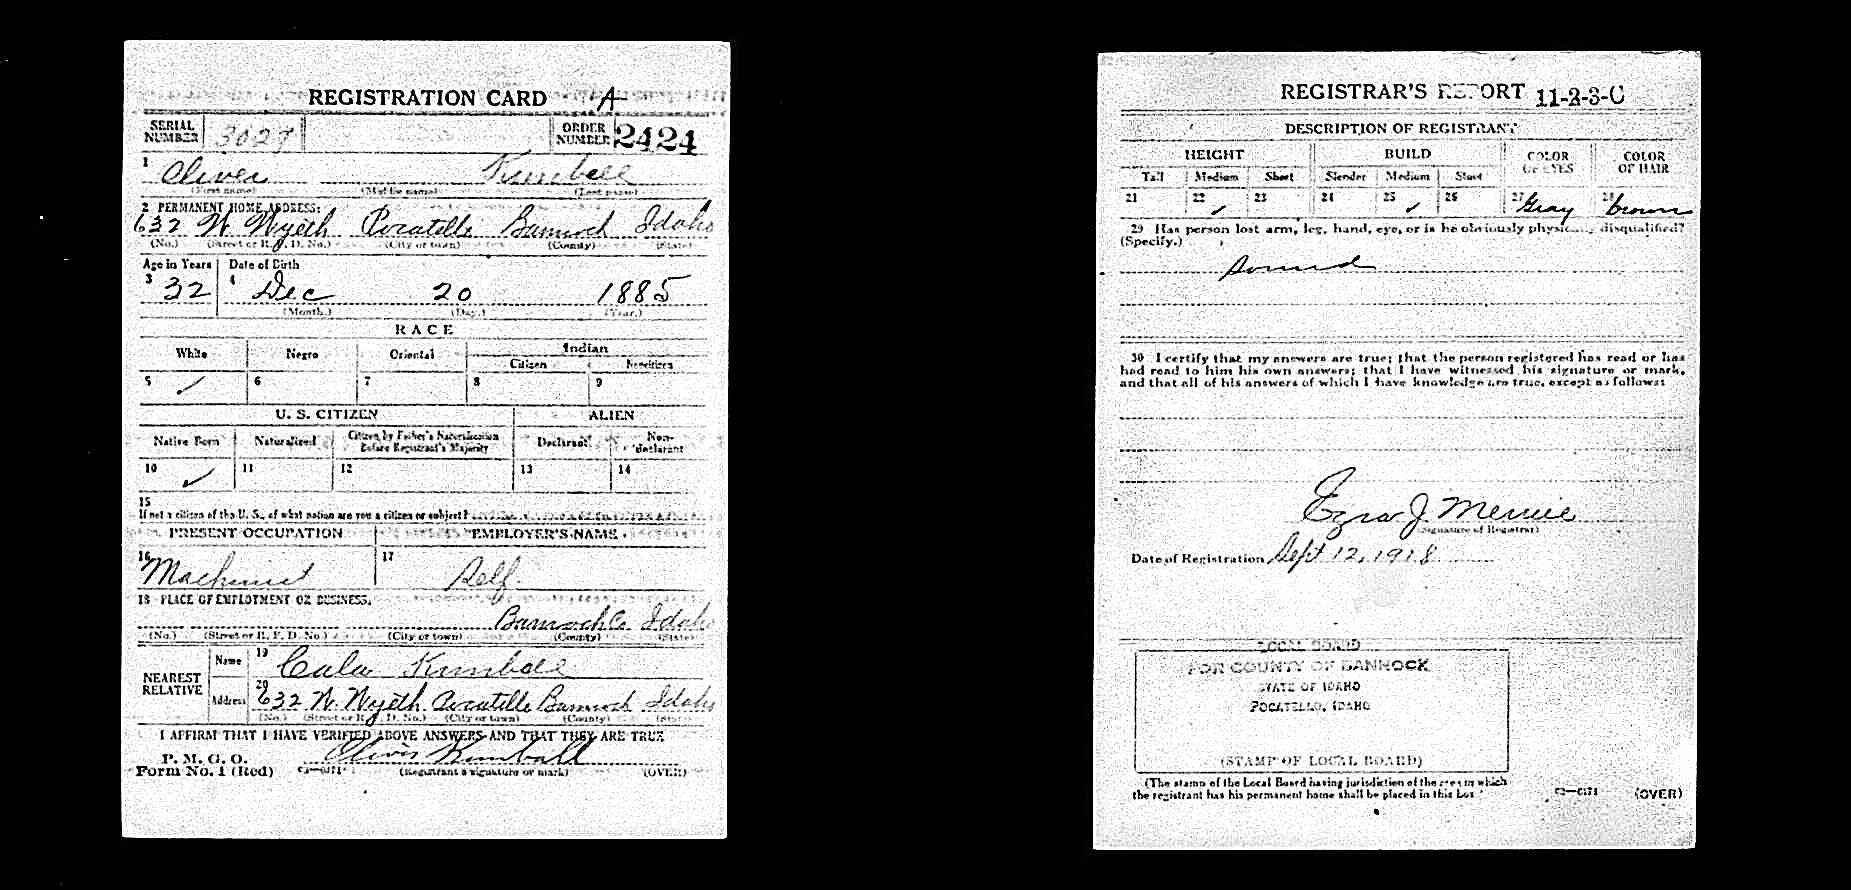 REGISTRATION CARD A
SERIAL NUMBER 3027 ORDER NUMBER 2424
1 Oliver Kimball
(First name) (Middle name) (Last name)
2 PERMANENT HOME ADDRESS:
632 N Wyeth Pocatello Bannock Idaho
(No.) (Street or R. F. D. No.) (City or town) (County) (State)
Age in Years Date of Birth
3 32 4 Dec 20 1885
(Month.) (Day.) (Year.)
RACE
White Negro Oriental Indian
Citizen Noncitizen
5 ✓ 6 7 8 9
U. S. CITIZEN ALIEN
Native Born Naturalized Citizen by Father's Naturalization Before Registrant's Majority Declarant Non-declarant
10 ✓ 11 12 13 14
15
If not a citizen of the U. S., of what nation are you a citizen or subject?
PRESENT OCCUPATION EMPLOYER'S NAME
16 Machinist 17 Self
18 PLACE OF EMPLOYMENT OR BUSINESS.
Bannock Co Idaho
(No.) (Street or R. F. D. No.) (City or town) (County) (State)
NEAREST RELATIVE Name 19 Kimball
Address 20 632 N. Wyeth Pocatello Bannock Idaho
(No.) (Street or R. F. D. No.) (City or town) (County) (State)
I AFFIRM THAT I HAVE VERIFIED ABOVE ANSWERS AND THAT THEY ARE TRUE
P. M. G. O.
Form No. 1 (Red) Oliver Kimball
(Registrant's signature or mark) (OVER)
REGISTRAR'S REPORT 11-2-3-C
DESCRIPTION OF REGISTRANT
HEIGHT BUILD COLOR OF EYES COLOR OF HAIR
Tall Medium Short Slender Medium Stout
21 22 ✓ 23 24 25 ✓ 26 27 Gray 28 brown
29 Has person lost arm, leg, hand, eye, or is he obviously physically disqualified?
(Specify.)
sound
30 I certify that my answers are true; that the person registered has read or has
had read to him his own answers; that I have witnessed his signature or mark,
and that all of his answers of which I have knowledge are true, except as follows:
Ezra J.
(Signature of Registrar)
Date of Registration Sept 12, 1918
LOCAL BOARD
FOR COUNTY OF BANNOCK
STATE OF IDAHO
POCATELLO, IDAHO
(STAMP OF LOCAL BOARD)
(The stamp of the Local Board having jurisdiction of the area in which
the registrant has his permanent home shall be placed in this box.)
03—6171 (OVER)